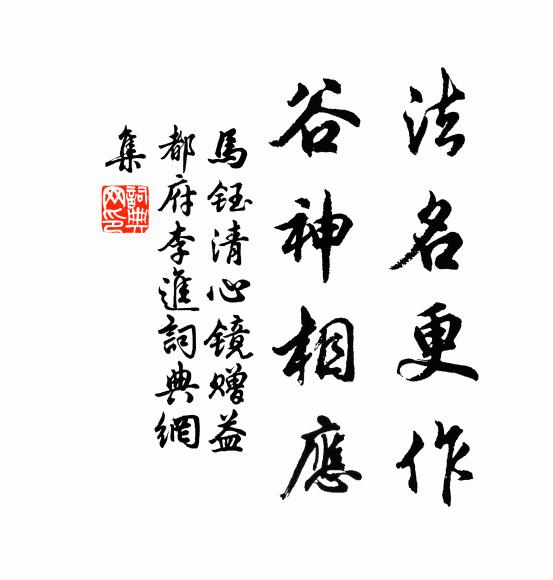 法名更作
谷神相應
馬鈺清心镜赠益
都府李進詞典網
集
詞典网印